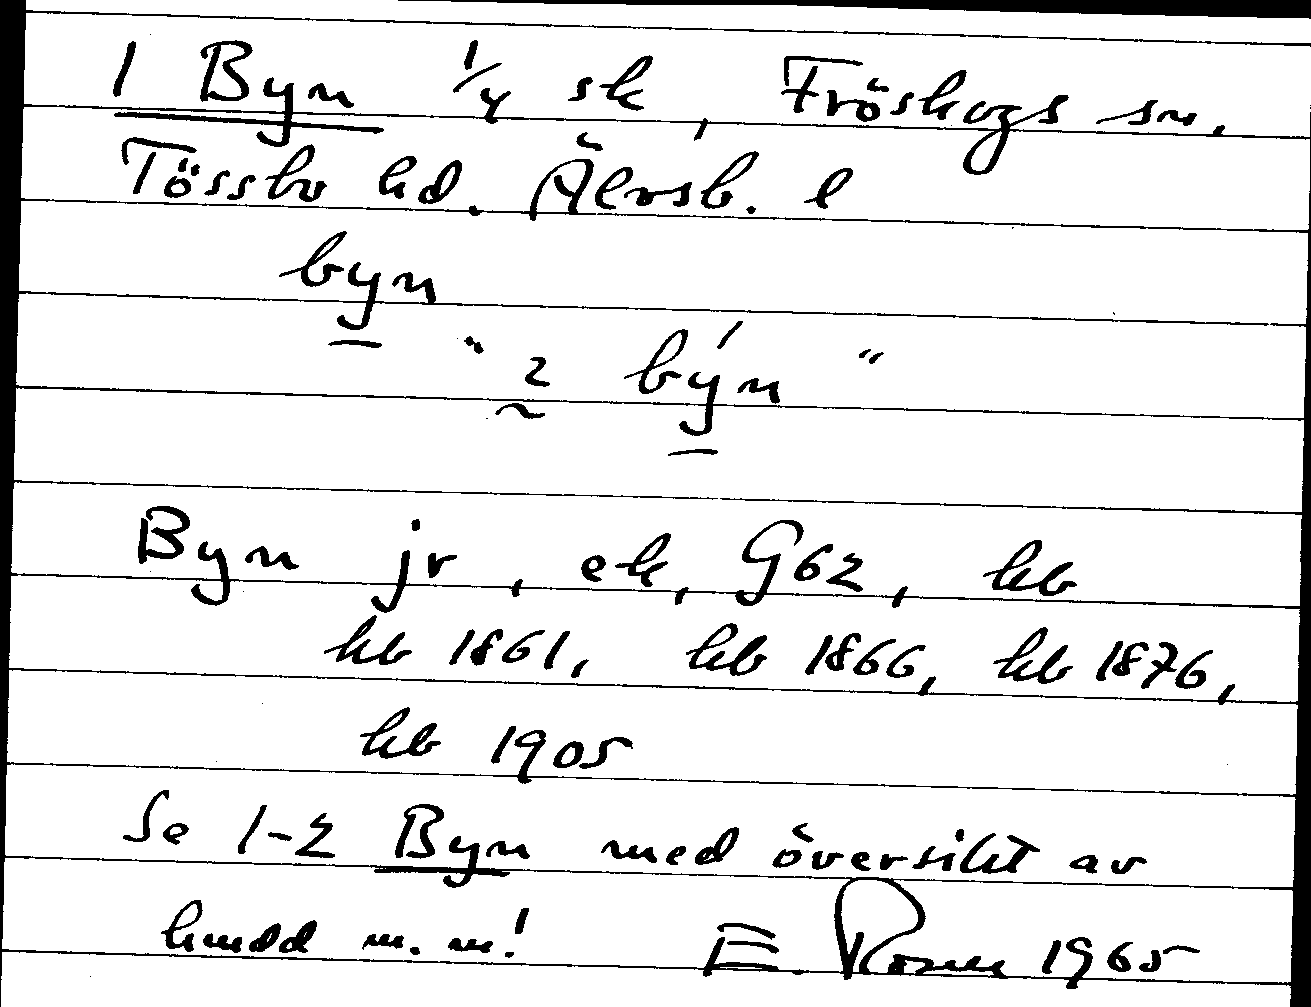 1 Byn 1/4 sk, Fröskogs sn.
Tössbo hd. Älvsb. l
byn
" 2 býn "
Byn jr, ek, G62, hb
hb 1861, hb 1866, hb 1876,
hb 1905
Se 1-2 Byn med översikt av
hmdd m. m! E. Rosen 1965